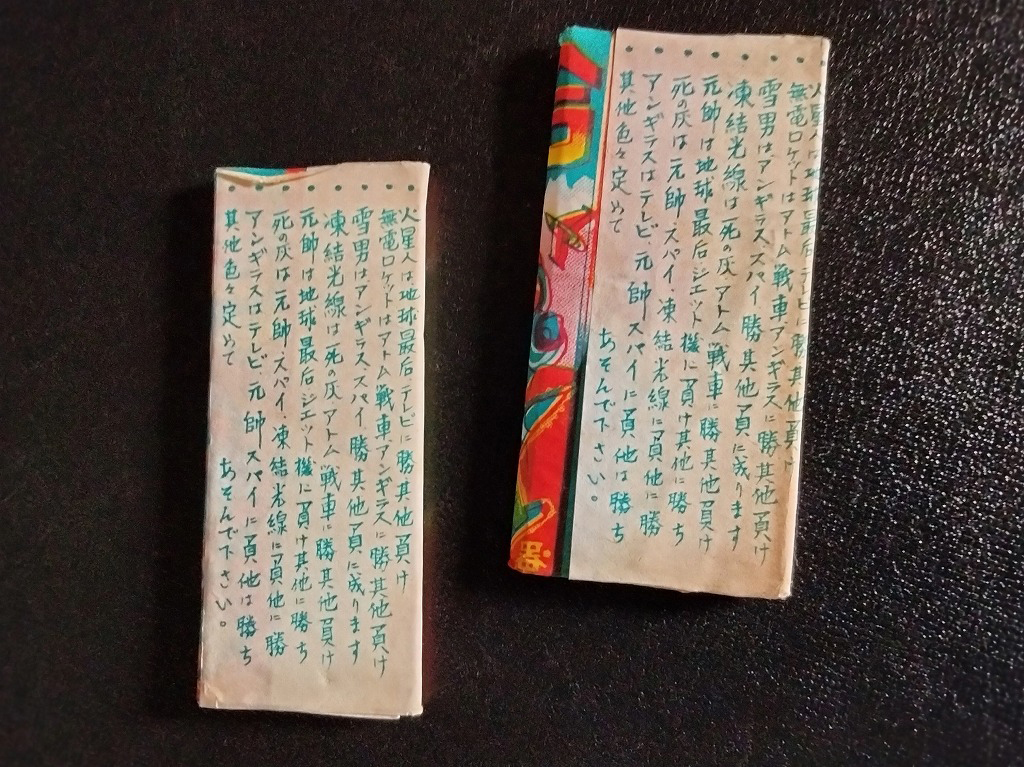 火星人は地球最后テレビに勝其他負け
無電ロケットはアトム戦車アンギラスに勝其他負け
雪男はアンギラス、スパイ勝其他負に成ります
凍結光線は死の灰アトム戦車に勝其他負け
元帥は地球最后ジェット機に負け其他に勝ち
死の灰は元帥スパイ凍結光線に負他に勝
アンギラスはテレビ、元帥スパイに負他は勝ち
其他色々定めて あそんで下さい。
火星人は地球最后テレビに勝其他負け
無電ロケットはアトム戦車アンギラスに勝其他負け
雪男はアンギラス、スパイ勝其他負に成ります
凍結光線は死の灰アトム戦車に勝其他負け
元帥は地球最后ジェット機に負け其他に勝ち
死の灰は元帥スパイ凍結光線に負他に勝
アンギラスはテレビ、元帥スパイに負他は勝ち
其他色々定めて あそんで下さい。